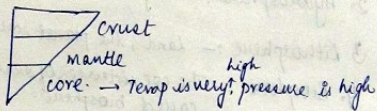 crust
mantle
high
core. → Temp is very↑ pressure is high